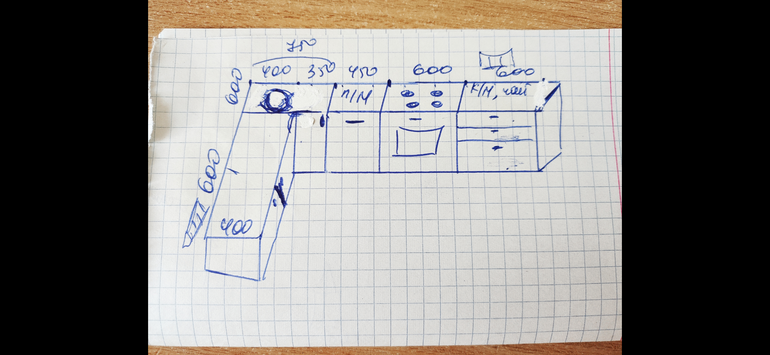 750
600 400 350 450 600 600
П/М К/М, чай
600
400